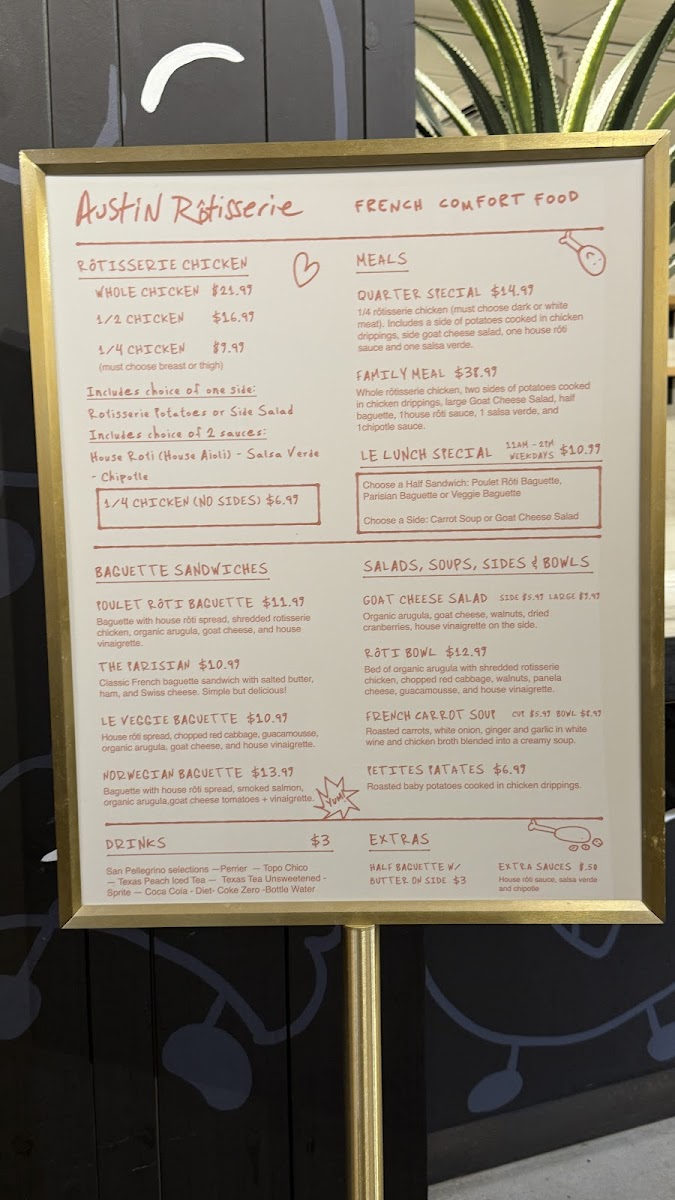 Austin Rôtisserie
FRENCH COMFORT FOOD
RôTISSERIE CHICKEN
WHOLE CHICKEN $21.99
1/2 CHICKEN $16.99
1/4 CHICKEN $9.99
(must choose breast or thigh)
Includes choice of one side:
Rotisserie Potatoes or Side Salad
Includes choice of 2 sauces:
House Roti (House Aioli) - Salsa Verde
- Chipotle
1/4 CHICKEN (NO SIDES) $6.99
MEALS
QUARTER SPECIAL $14.99
1/4 rôtisserie chicken (must choose dark or white
meat). Includes a side of potatoes cooked in chicken
drippings, side goat cheese salad, one house rôti
sauce and one salsa verde.
FAMILY MEAL $38.99
Whole rôtisserie chicken, two sides of potatoes cooked
in chicken drippings, large Goat Cheese Salad, half
baguette, 1house rôti sauce, 1 salsa verde, and
1chipotle sauce.
LE LUNCH SPECIAL 11AM - 2PM WEEKDAYS $10.99
Choose a Half Sandwich: Poulet Rôti Baguette,
Parisian Baguette or Veggie Baguette
Choose a Side: Carrot Soup or Goat Cheese Salad
BAGUETTE SANDWICHES
POULET RôTI BAGUETTE $11.99
Baguette with house rôti spread, shredded rotisserie
chicken, organic arugula, goat cheese, and house
vinaigrette.
THE PARISIAN $10.99
Classic French baguette sandwich with salted butter,
ham, and Swiss cheese. Simple but delicious!
LE VEGGIE BAGUETTE $10.99
House rôti spread, chopped red cabbage, guacamousse,
organic arugula, goat cheese, and house vinaigrette.
NORWEGIAN BAGUETTE $13.99
Baguette with house rôti spread, smoked salmon,
organic arugula,goat cheese tomatoes + vinaigrette.
YUM!
SALADS, SOUPS, SIDES & BOWLS
GOAT CHEESE SALAD SIDE $5.99 LARGE $9.99
Organic arugula, goat cheese, walnuts, dried
cranberries, house vinaigrette on the side.
RôTI BOWL $12.99
Bed of organic arugula with shredded rotisserie
chicken, chopped red cabbage, walnuts, panela
cheese, guacamousse, and house vinaigrette.
FRENCH CARROT SOUP CUP $5.99 BOWL $8.99
Roasted carrots, white onion, ginger and garlic in white
wine and chicken broth blended into a creamy soup.
PETITES PATATES $6.99
Roasted baby potatoes cooked in chicken drippings.
DRINKS $3
San Pellegrino selections —Perrier — Topo Chico
— Texas Peach Iced Tea — Texas Tea Unsweetened -
Sprite — Coca Cola - Diet- Coke Zero -Bottle Water
EXTRAS
HALF BAGUETTE W/
BUTTER ON SIDE $3
EXTRA SAUCES $.50
House rôti sauce, salsa verde
and chipotle